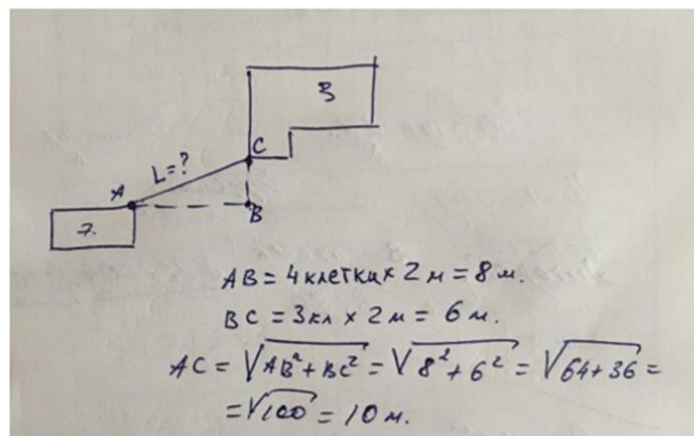 3
C
L=?
A
B
7.
AB = 4 клетки × 2 м = 8 м.
BC = 3 кл × 2 м = 6 м.
AC = √AB²+BC² = √8²+6² = √64+36 =
= √100 = 10 м.